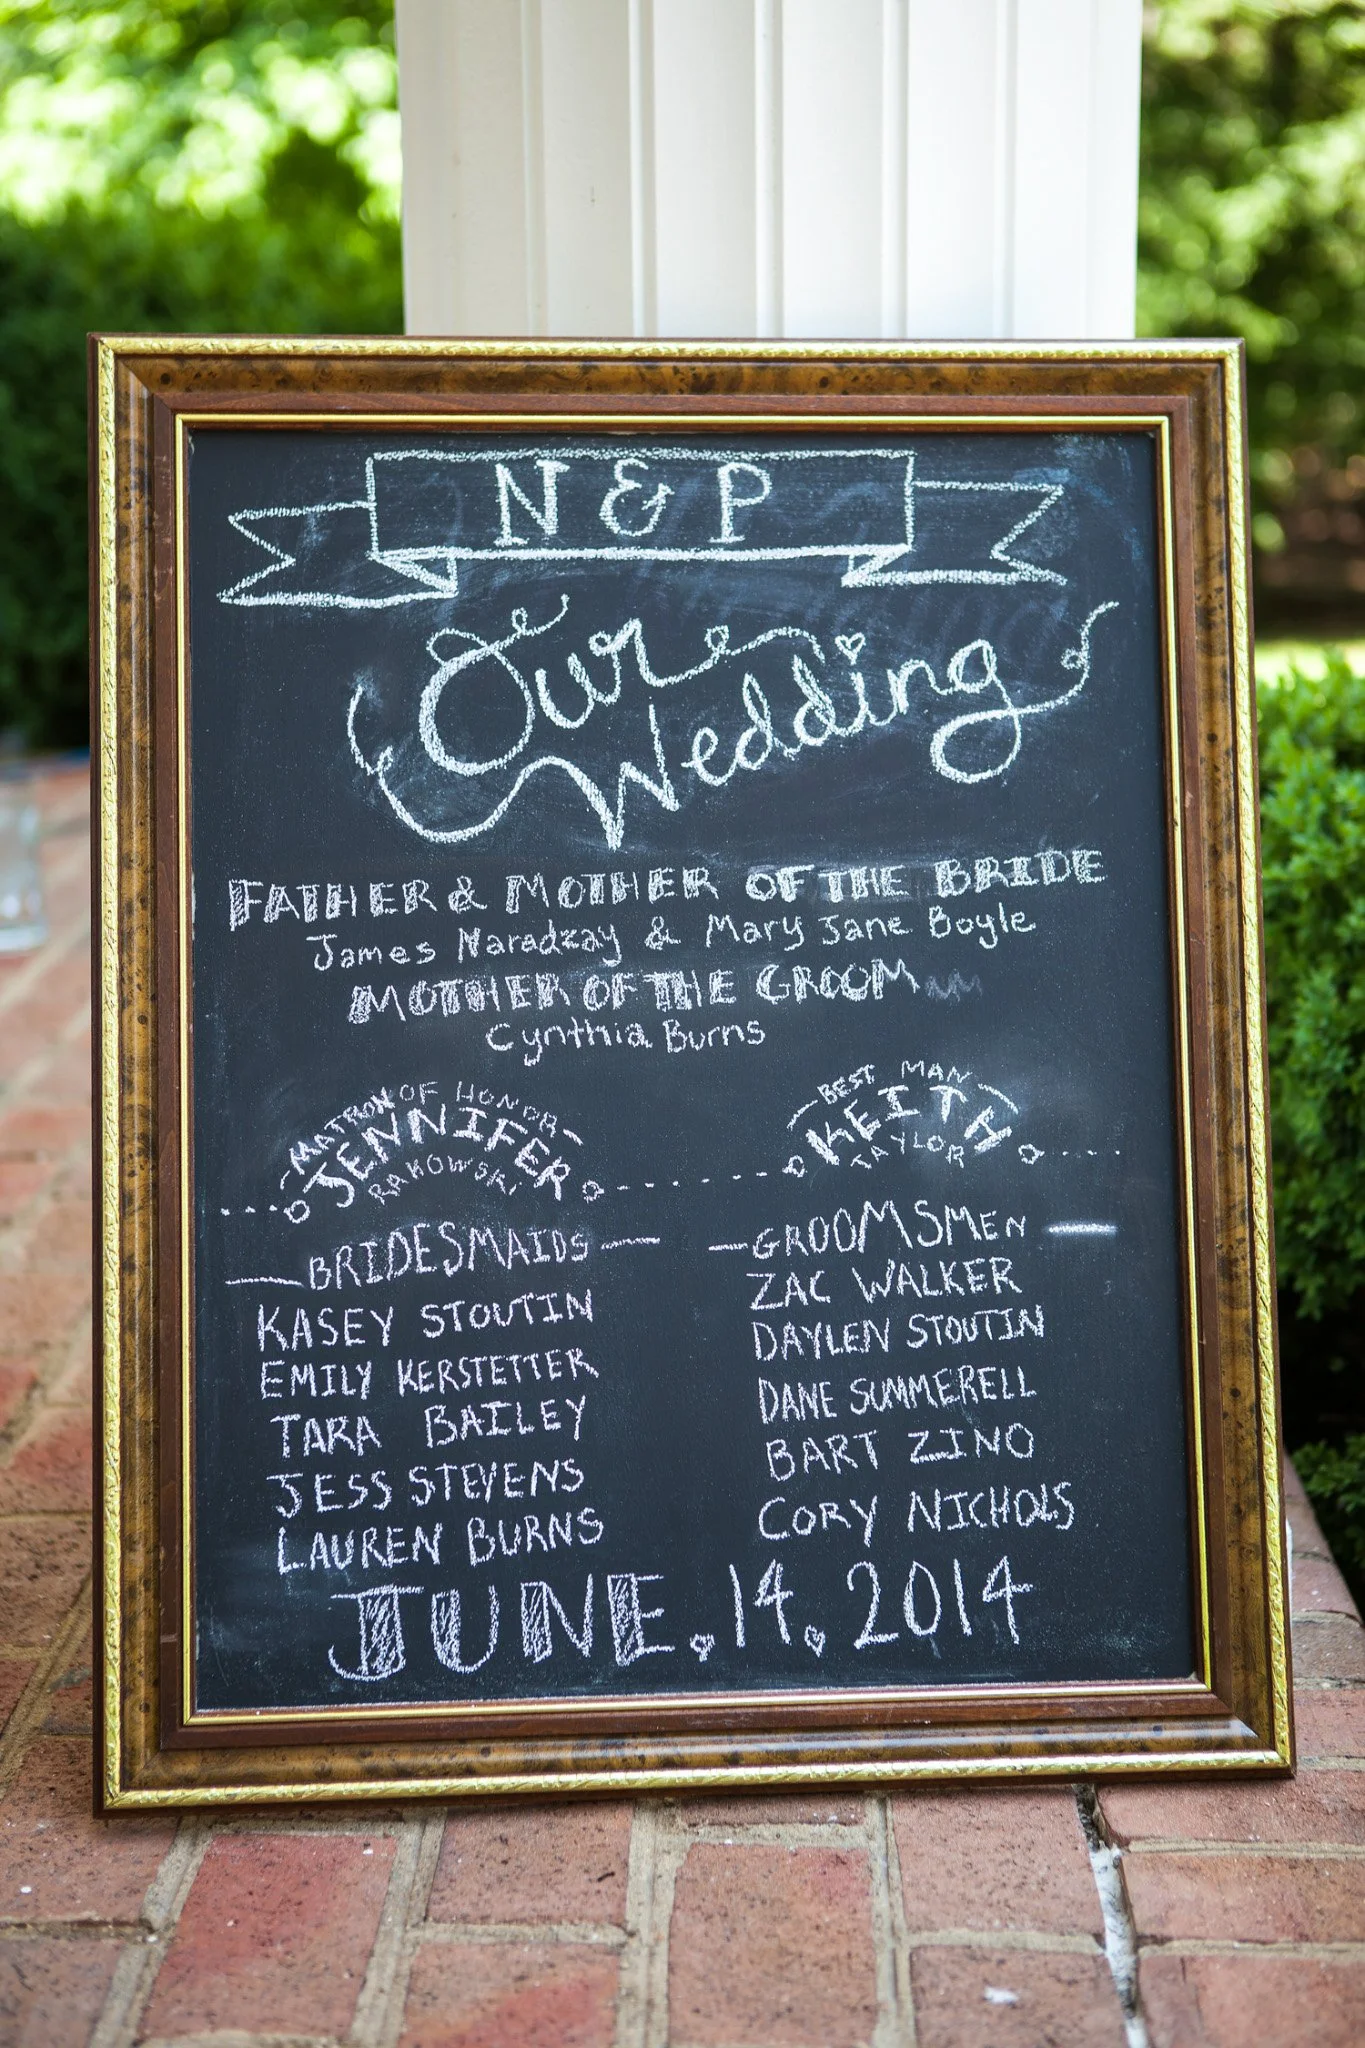 N & P
Our
Wedding
FATHER & MOTHER OF THE BRIDE
James Naradzay & Mary Jane Boyle
MOTHER OF THE GROOM
Cynthia Burns
MATRON OF HONOR
JENNIFER
RAKOWSKI
BRIDESMAIDS
KASEY STOUTIN
EMILY KERSTETTER
TARA BAILEY
JESS STEVENS
LAUREN BURNS
BEST MAN
KEITH
TAYLOR
GROOMSMEN
ZAC WALKER
DAYLEN STOUTIN
DANE SUMMERELL
BART ZINO
CORY NICHOLS
JUNE. 14. 2014